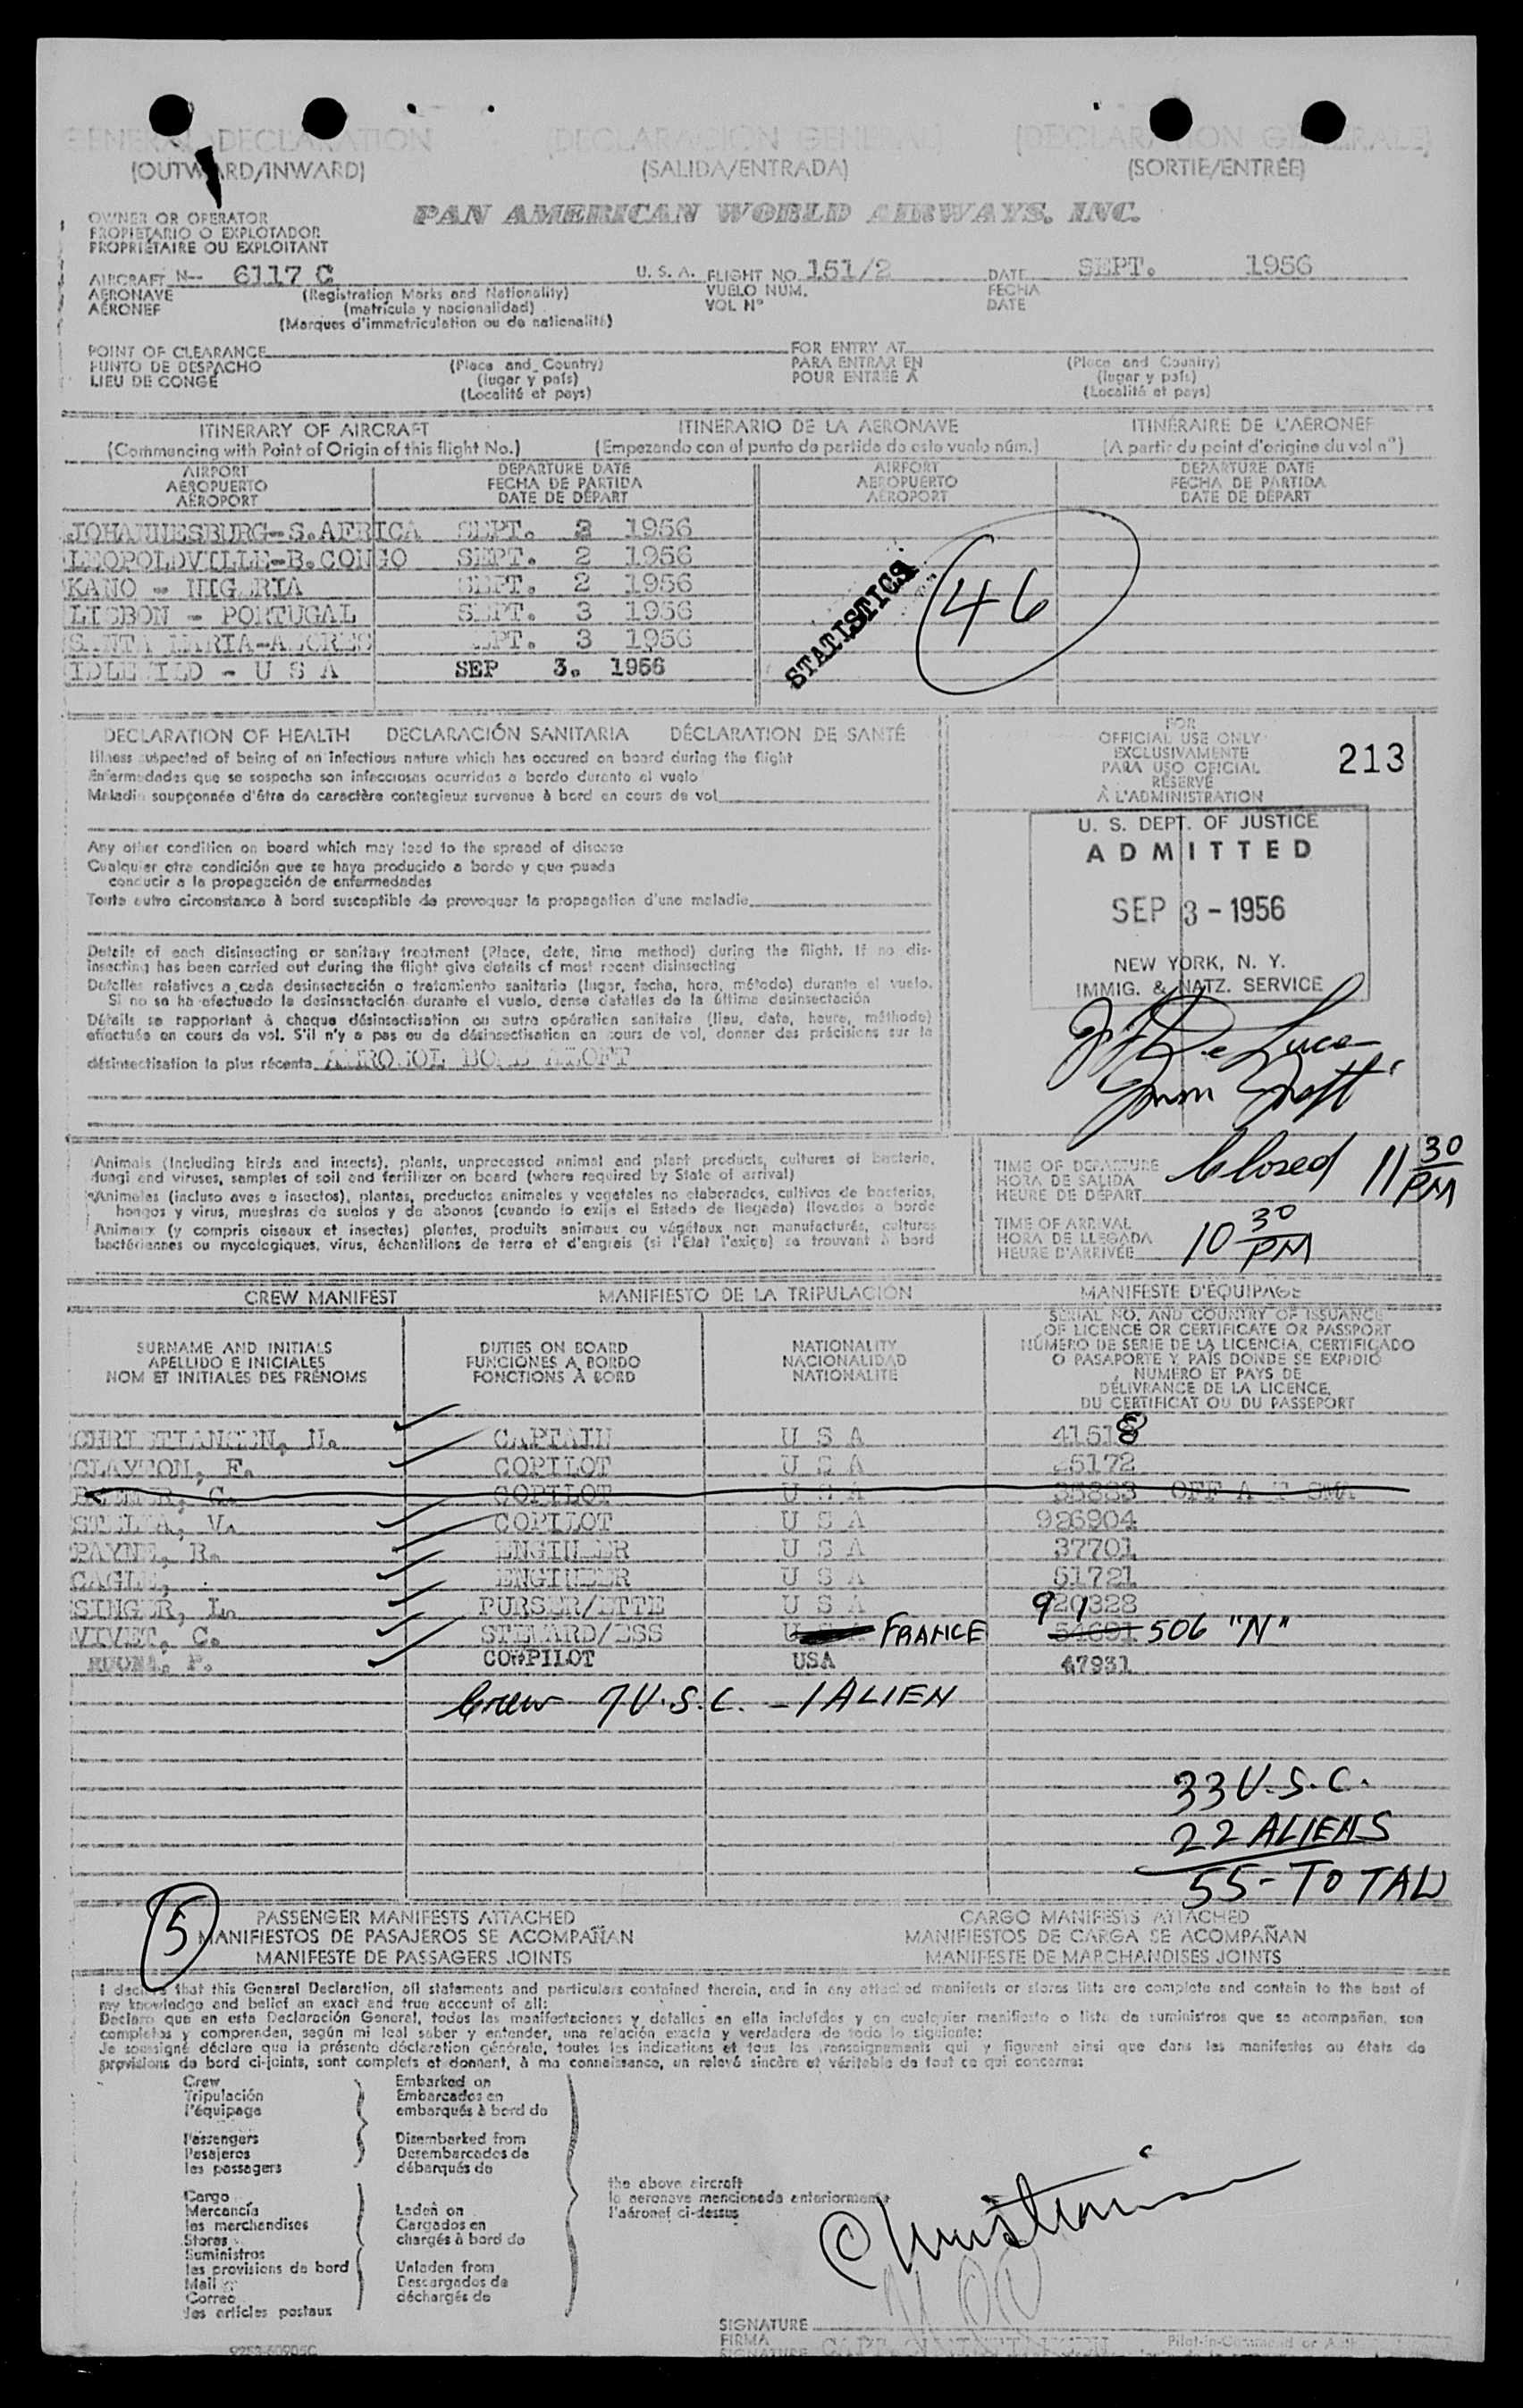 GENERAL DECLARATION (DECLARACIÓN GENERAL) (DÉCLARATION GÉNÉRALE)
(OUTWARD/INWARD) (SALIDA/ENTRADA) (SORTIE/ENTRÉE)
OWNER OR OPERATOR PAN AMERICAN WORLD AIRWAYS, INC.
PROPIETARIO O EXPLOTADOR
PROPRIÉTAIRE OU EXPLOITANT
AIRCRAFT N-- 6117 C U. S. A. FLIGHT NO. 151/2 DATE SEPT. 1956
AERONAVE (Registration Marks and Nationality) VUELO NUM. FECHA
AÉRONEF (matrícula y nacionalidad) VOL N° DATE
(Marques d'immatriculation ou de nationalité)
POINT OF CLEARANCE FOR ENTRY AT
PUNTO DE DESPACHO (Place and Country) PARA ENTRAR EN (Place and Country)
LIEU DE CONGÉ (lugar y país) POUR ENTRÉE À (lugar y país)
(Localité et pays) (Localité et pays)
ITINERARY OF AIRCRAFT ITINERARIO DE LA AERONAVE ITINÉRAIRE DE L'AÉRONEF
(Commencing with Point of Origin of this flight No.) (Empezando con el punto de partida de este vuelo núm.) (A partir du point d'origine du vol n°)
AIRPORT DEPARTURE DATE AIRPORT DEPARTURE DATE
AEROPUERTO FECHA DE PARTIDA AEROPUERTO FECHA DE PARTIDA
AÉROPORT DATE DE DÉPART AÉROPORT DATE DE DÉPART
JOHANNESBURG-S.AFRICA SEPT. 2 1956
LEOPOLDVILLE-B.CONGO SEPT. 2 1956
KANO - NIGERIA SEPT. 2 1956
LISBON - PORTUGAL SEPT. 3 1956
SANTA MARIA-AZORES SEPT. 3 1956
IDLEWILD - U S A SEP 3. 1956
STATISTICS
46
DECLARATION OF HEALTH DECLARACIÓN SANITARIA DÉCLARATION DE SANTÉ
Illness suspected of being of an infectious nature which has occured on board during the flight
Enfermedades que se sospecha son infecciosas ocurridas a bordo durante el vuelo
Maladie soupçonnée d'être de caractère contagieux survenue à bord en cours de vol
Any other condition on board which may lead to the spread of disease
Cualquier otra condición que se haya producido a bordo y que pueda
conducir a la propagación de enfermedades
Toute autre circonstance à bord susceptible de provoquer la propagation d'une maladie
Details of each disinsecting or sanitary treatment (Place, date, time method) during the flight. If no dis-
insecting has been carried out during the flight give details of most recent disinsecting
Detalles relativos a cada desinsectación o tratamiento sanitario (lugar, fecha, hora, método) durante el vuelo.
Si no se ha efectuado la desinsectación durante el vuelo, dense detalles de la última desinsectación
Détails se rapportant à chaque désinsectisation ou autre opération sanitaire (lieu, date, heure, méthode)
effectuée en cours de vol. S'il n'y a pas eu de désinsectisation en cours de vol, donner des précisions sur la
désinsectisation la plus récente AEROSOL BOMB ALOFT
FOR
OFFICIAL USE ONLY
EXCLUSIVAMENTE
PARA USO OFICIAL
RÉSERVÉ
À L'ADMINISTRATION
213
U. S. DEPT. OF JUSTICE
ADMITTED
SEP 3 - 1956
NEW YORK, N. Y.
IMMIG. & NATZ. SERVICE
De Luca
Animals (Including birds and insects), plants, unprocessed animal and plant products, cultures of bacteria,
fungi and viruses, samples of soil and fertilizer on board (where required by State of arrival)
Animales (incluso aves e insectos), plantas, productos animales y vegetales no elaborados, cultivos de bacterias,
hongos y virus, muestras de suelos y de abonos (cuando lo exija el Estado de llegada) llevados a bordo
Animaux (y compris oiseaux et insectes) plantes, produits animaux ou végétaux non manufacturés, cultures
bactériennes ou mycologiques, virus, échantillons de terre et d'engrais (si l'État l'exige) se trouvant à bord
TIME OF DEPARTURE Closed 11 30 PM
HORA DE SALIDA
HEURE DE DÉPART
TIME OF ARRIVAL 10 30 PM
HORA DE LLEGADA
HEURE D'ARRIVÉE
CREW MANIFEST MANIFIESTO DE LA TRIPULACIÓN MANIFESTE D'ÉQUIPAGE
SURNAME AND INITIALS
APELLIDO E INICIALES
NOM ET INITIALES DES PRÉNOMS
DUTIES ON BOARD
FUNCIONES A BORDO
FONCTIONS À BORD
NATIONALITY
NACIONALIDAD
NATIONALITÉ
SERIAL NO. AND COUNTRY OF ISSUANCE
OF LICENCE OR CERTIFICATE OR PASSPORT
NÚMERO DE SERIE DE LA LICENCIA, CERTIFICADO
O PASAPORTE Y PAÍS DONDE SE EXPIDIÓ
NUMÉRO ET PAYS DE
DÉLIVRANCE DE LA LICENCE,
DU CERTIFICAT OU DU PASSEPORT
CHRISTIANSEN, N. CAPTAIN U S A 41518
CLAYTON, F. COPILOT U S A 5172
C. COPILOT U S A OFF A T SMA
STELLA, V. COPILOT U S A 926904
PAYNE, R. ENGINEER U S A 37701
CAGLE, ENGINEER U S A 51721
SINGER, L. PURSER/ETTE U S A 920328
VIVET, C. STEWARD/ESS FRANCE 91 506 "N"
P. COPILOT USA 47931
Crew 7 U.S.C. - 1 ALIEN
33 U.S.C.
22 ALIENS
55 - TOTAL
5
PASSENGER MANIFESTS ATTACHED CARGO MANIFESTS ATTACHED
MANIFIESTOS DE PASAJEROS SE ACOMPAÑAN MANIFIESTOS DE CARGA SE ACOMPAÑAN
MANIFESTE DE PASSAGERS JOINTS MANIFESTE DE MARCHANDISES JOINTS
I declare that this General Declaration, all statements and particulars contained therein, and in any attached manifests or stores lists are complete and contain to the best of
my knowledge and belief an exact and true account of all:
Declaro que en esta Declaración General, todas las manifestaciones y detalles en ella incluídos y en cualquier manifiesto o lista de suministros que se acompañan, son
completos y comprenden, según mi leal saber y entender, una relación exacta y verdadera de todo lo siguiente:
Je soussigné déclare que la présente déclaration générale, toutes les indications et tous les renseignements qui y figurent ainsi que dans les manifestes ou états de
provisions de bord ci-joints, sont complets et donnent, à ma connaissance, un relevé sincère et véritable de tout ce qui concerne:
Crew Embarked on
Tripulación Embarcados en
l'équipage embarqués à bord de
Passengers Disembarked from
Pasajeros Desembarcados de
les passagers débarqués de
the above aircraft
la aeronave mencionada anteriormente
l'aéronef ci-dessus
Cargo
Mercancía Laden on
les marchandises Cargados en
Stores chargés à bord de
Suministros
les provisions de bord Unladen from
Mail Descargados de
Correo déchargés de
les articles postaux
Christiansen
SIGNATURE
FIRMA
SIGNATURE CAPT. CHRISTIANSEN Pilot-in-Command or